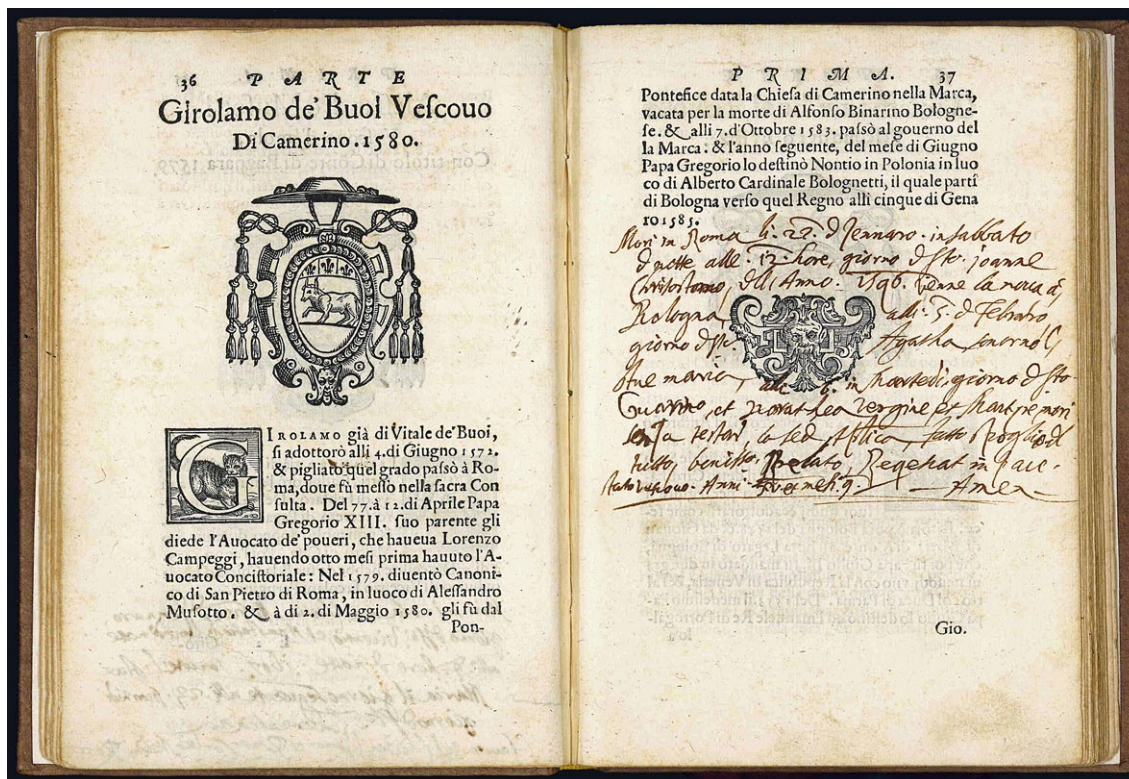 36 PARTE
Girolamo de' Buoi Veſcouo
Di Camerino. 1580.
GIROLAMO già di Vitale de' Buoi,
ſi adottorò alli 4. di Giugno 1572.
& pigliato quel grado paſsò à Ro-
ma, doue fù meſſo nella ſacra Con
ſulta. Del 77. à 12. di Aprile Papa
Gregorio XIII. ſuo parente gli
diede l'Auocato de' poueri, che haueua Lorenzo
Campeggi, hauendo otto meſi prima hauuto l'A-
uocato Conciſtoriale: Nel 1579. diuentò Canoni-
co di San Pietro di Roma, in luoco di Aleſſandro
Muſotto. & à di 2. di Maggio 1580. gli fù dal
Pon-
PRIMA. 37
Pontefice data la Chieſa di Camerino nella Marca,
vacata per la morte di Alfonſo Binarino Bologne-
ſe. & alli 7. d'Ottobre 1583. paſsò al gouerno del
la Marca. & l'anno ſeguente, del meſe di Giugno
Papa Gregorio lo deſtinò Nontio in Polonia in luo
co di Alberto Cardinale Bolognetti, il quale partì
di Bologna verſo quel Regno alli cinque di Gena
ro 1585.
Morì in Roma li. 27. d Jennaro. in ſabbato
d notte alle. 12. hore, giorno d Sto. Joanne
Chriſoſtomo, dell Anno. 1596. Venne la nova à
Bologna, alli. 5. d Febraro
giorno d Agatha
Ave maria, alli 6. in Martedì, giorno d Sto.
et Vergine et
la ſed
tutto, Prelato, in
Anni meſi. 9. Amen
Gio.